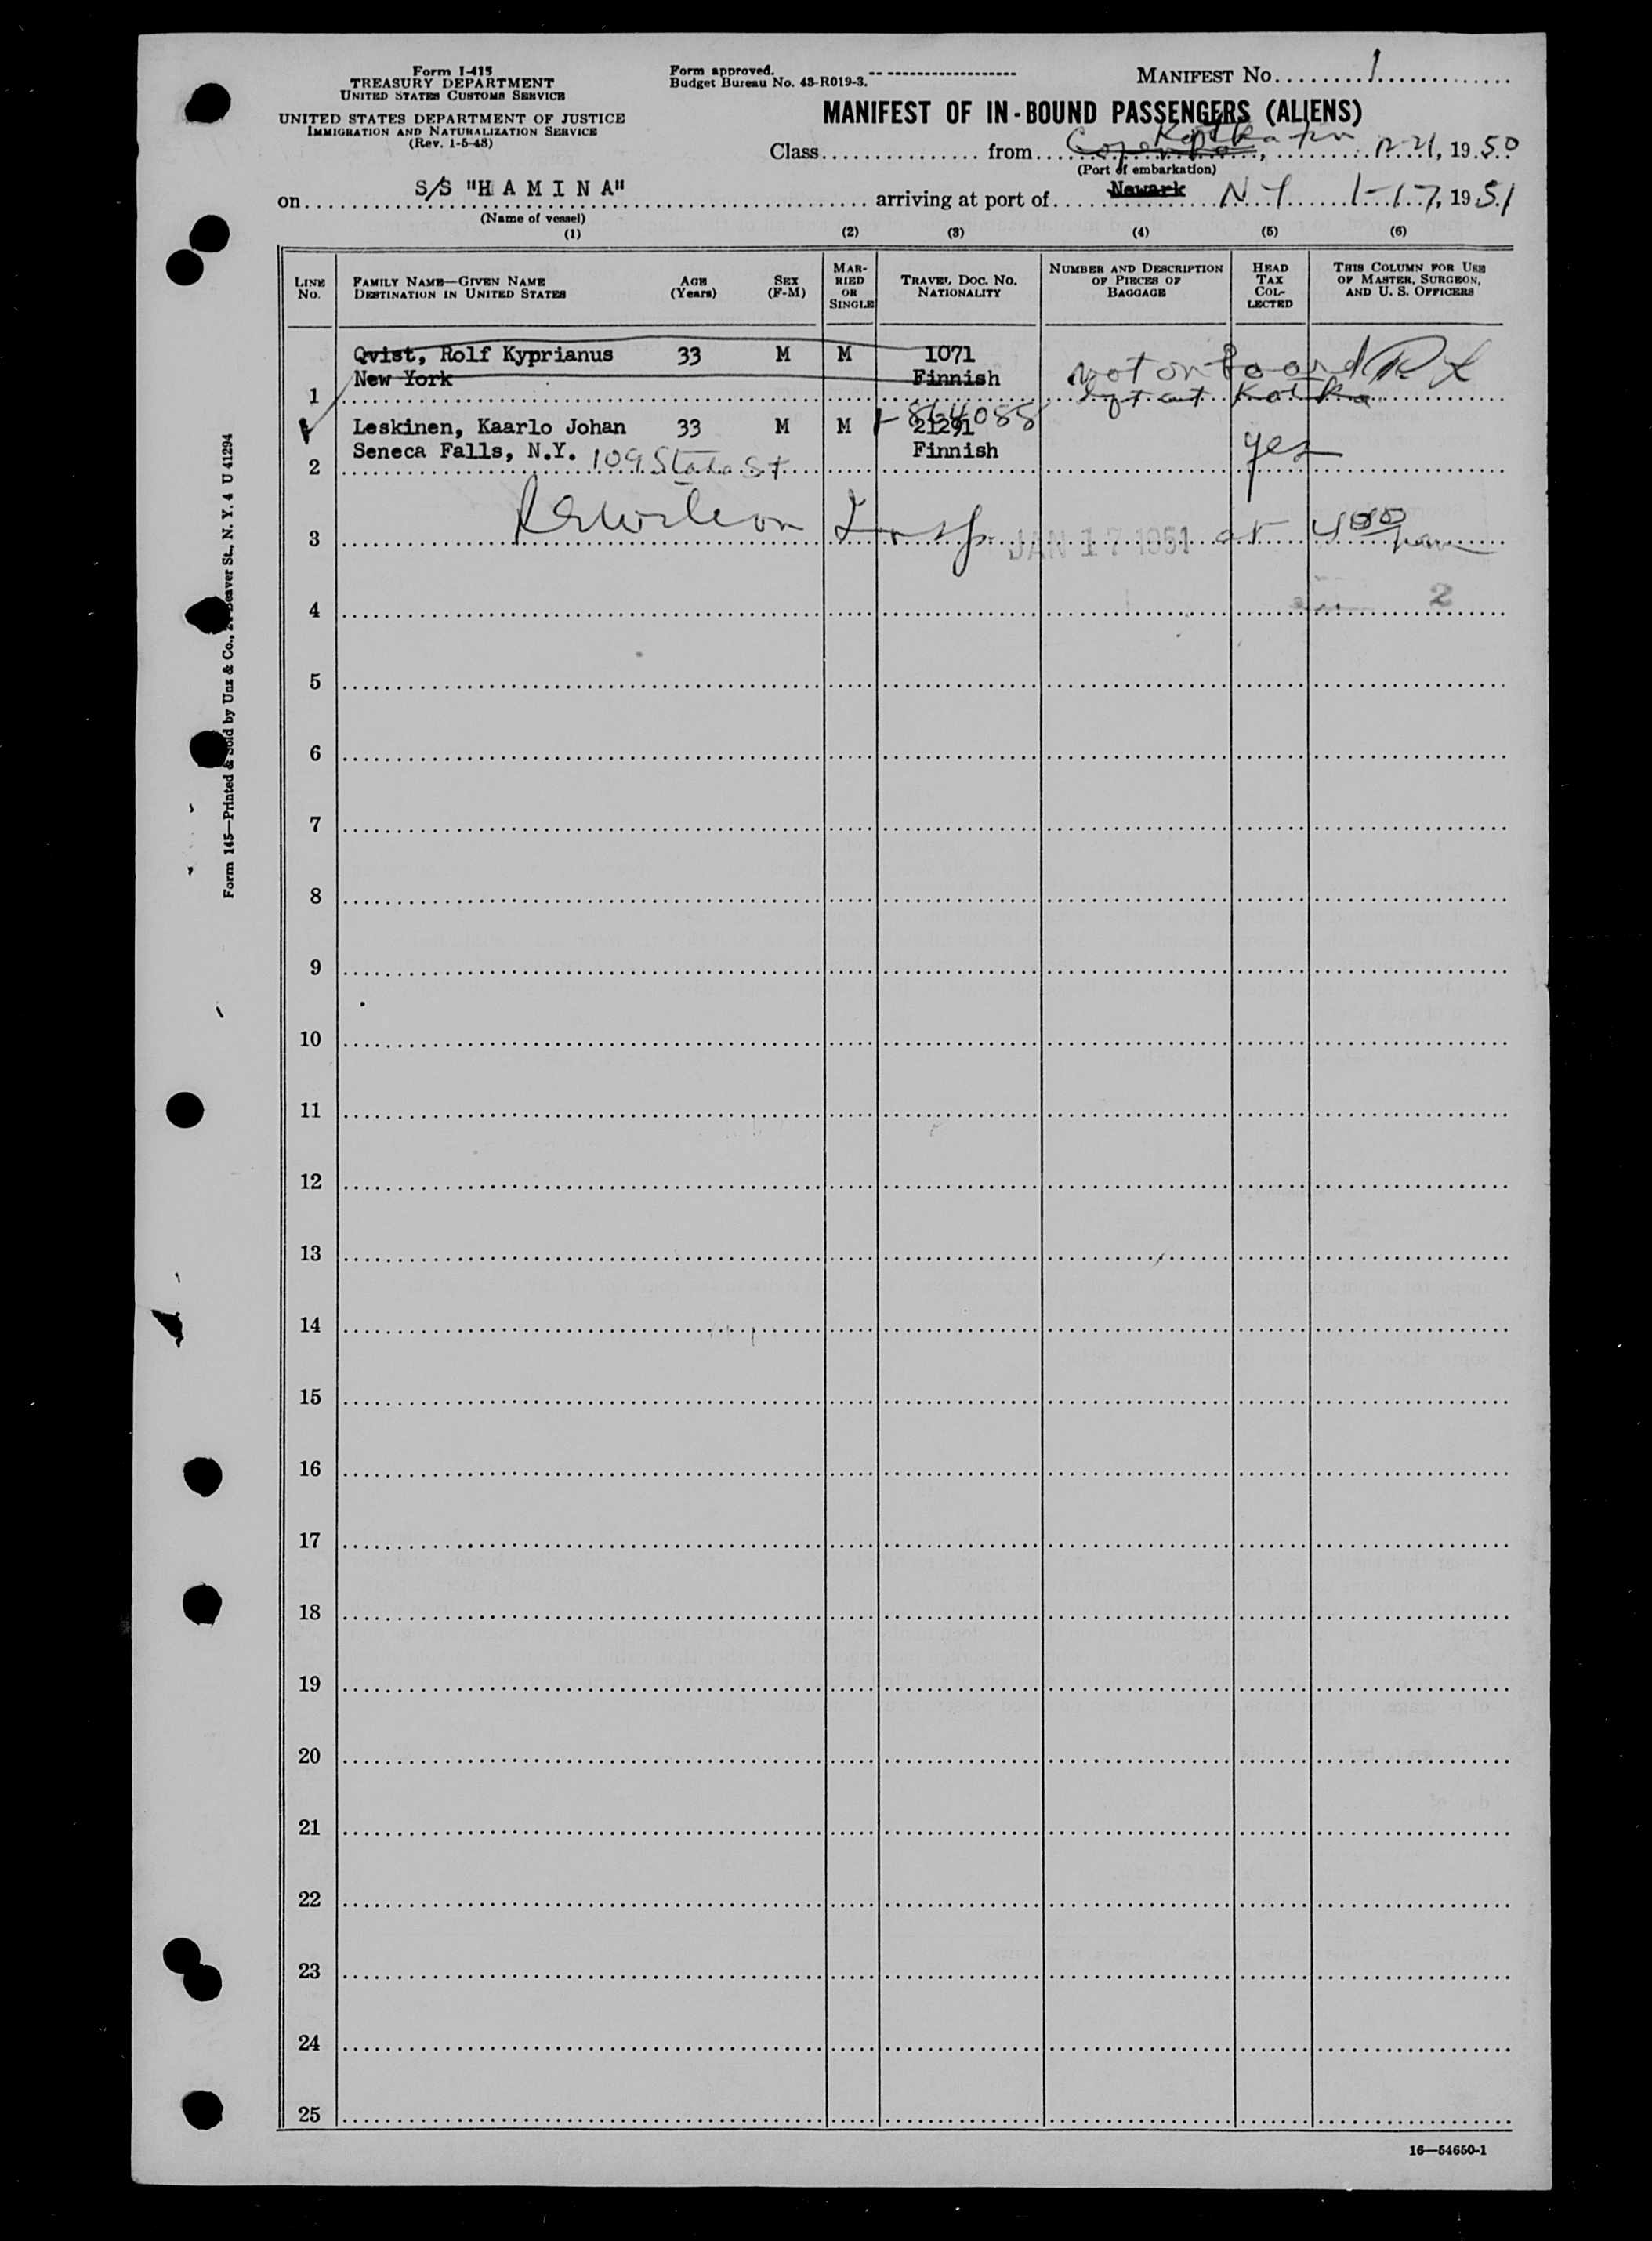 Form I-415
TREASURY DEPARTMENT
UNITED STATES CUSTOMS SERVICE
UNITED STATES DEPARTMENT OF JUSTICE
IMMIGRATION AND NATURALIZATION SERVICE
(Rev. 1-5-48)
Form approved.
Budget Bureau No. 43-R019-3.
MANIFEST NO. 1
MANIFEST OF IN-BOUND PASSENGERS (ALIENS)
Class from Kotka Fin 12-21, 1950
(Port of embarkation)
on S/S "H A M I N A" arriving at port of Newark N-Y 1-17, 1951
(Name of vessel)
(1) (2) (3) (4) (5) (6)
LINE NO. FAMILY NAME—GIVEN NAME DESTINATION IN UNITED STATES AGE (Years) SEX (F-M) MARRIED OR SINGLE TRAVEL DOC. NO. NATIONALITY NUMBER AND DESCRIPTION OF PIECES OF BAGGAGE HEAD TAX COLLECTED THIS COLUMN FOR USE OF MASTER, SURGEON, AND U. S. OFFICERS
Qvist, Rolf Kyprianus 33 M M 1071 not on board
New York Finnish
1 left at Kotka
Leskinen, Kaarlo Johan 33 M M 21291 yes
Seneca Falls, N.Y. 109 State St Finnish
2
3 Insp JAN 17 1951 at 4 00 pm
4 2
5
6
7
8
9
10
11
12
13
14
15
16
17
18
19
20
21
22
23
24
25
16—54650-1
Form 145—Printed & Sold by Unz & Co., Beaver St., N. Y. 4 U 41294